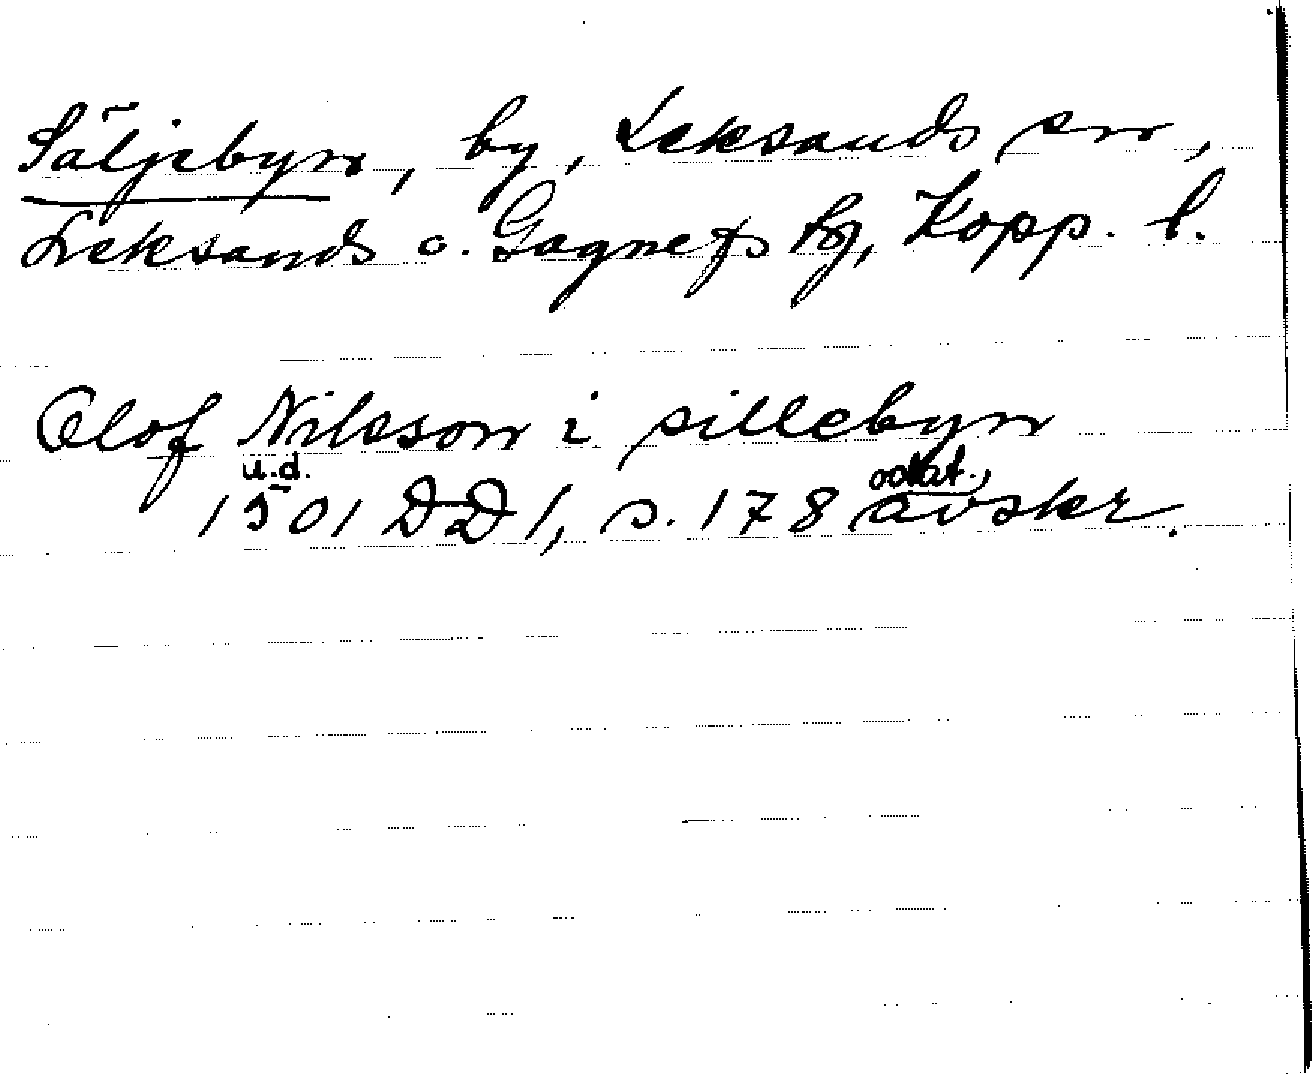 Säljebyn, by, Leksands sn,
Leksands o. Gagnefs tg, Kopp. l.
Olof Nilsson i sillebyn
u.d. odat.,
1501 DD 1, s. 178 avskr.